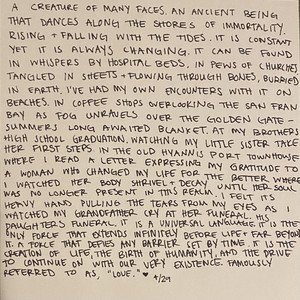 A CREATURE OF MANY FACES. AN ANCIENT BEING
THAT DANCES ALONG THE SHORES OF IMMORTALITY.
RISING + FALLING WITH THE TIDES. IT IS CONSTANT
YET IT IS ALWAYS CHANGING. IT CAN BE FOUND
IN WHISPERS BY HOSPITAL BEDS. IN PEWS OF CHURCHES
TANGLED IN SHEETS + FLOWING THROUGH BONES, BURRIED
IN EARTH. I'VE HAD MY OWN ENCOUNTERS WITH IT ON
BEACHES. IN COFFEE SHOPS OVERLOOKING THE SAN FRAN
BAY AS FOG UNRAVELS OVER THE GOLDEN GATE -
SUMMERS LONG AWAITED BLANKET. AT MY BROTHERS
HIGH SCHOOL GRADUATION. WATCHING MY LITTLE SISTER TAKE
HER FIRST STEPS. IN THE OLD HYANNIS PORT TOWNHOUSE
WHERE I READ A LETTER EXPRESSING MY GRATITUDE TO
A WOMAN WHO CHANGED MY LIFE FOR THE BETTER WHERE
I WATCHED HER BODY SHRIVEL + DECAY UNTIL HER SOUL
WAS NO LONGER PRESENT IN THIS REALM. I FELT ITS
HEAVY HAND PULLING THE TEARS FROM MY EYES AS I
WATCHED MY GRANDFATHER CRY AT HER FUNERAL. HIS
DAUGHTERS FUNERAL. IT IS A UNIVERSAL LANGUAGE. IT IS THE
ONLY FORCE THAT EXTENDS INFINITELY BEFORE LIFE + FAR BEYOND
IT. A FORCE THAT DEFIES ANY BARRIER SET BY TIME. IT IS THE
CREATION OF LIFE, THE BIRTH OF HUMANITY, AND THE DRIVE
TO CONTINUE ON WITH OUR VERY EXISTENCE. FAMOUSLY
REFERRED TO AS, "LOVE." ♥
4/29